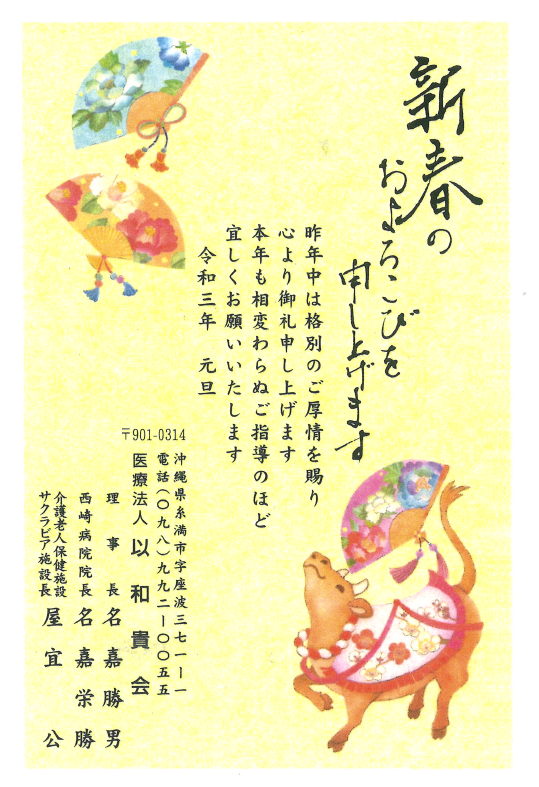 新春の
およろこびを
申し上げます
昨年中は格別のご厚情を賜り
心より御礼申し上げます
本年も相変わらぬご指導のほど
宜しくお願いいたします
令和三年 元旦
〒901-0314
沖縄県糸満市字座波三七一ー一
電話(〇九八)九九二ー〇〇五五
医療法人 以和貴会
理事長 名嘉勝男
西崎病院院長 名嘉栄勝
介護老人保健施設
サクラビア施設長 屋宜公